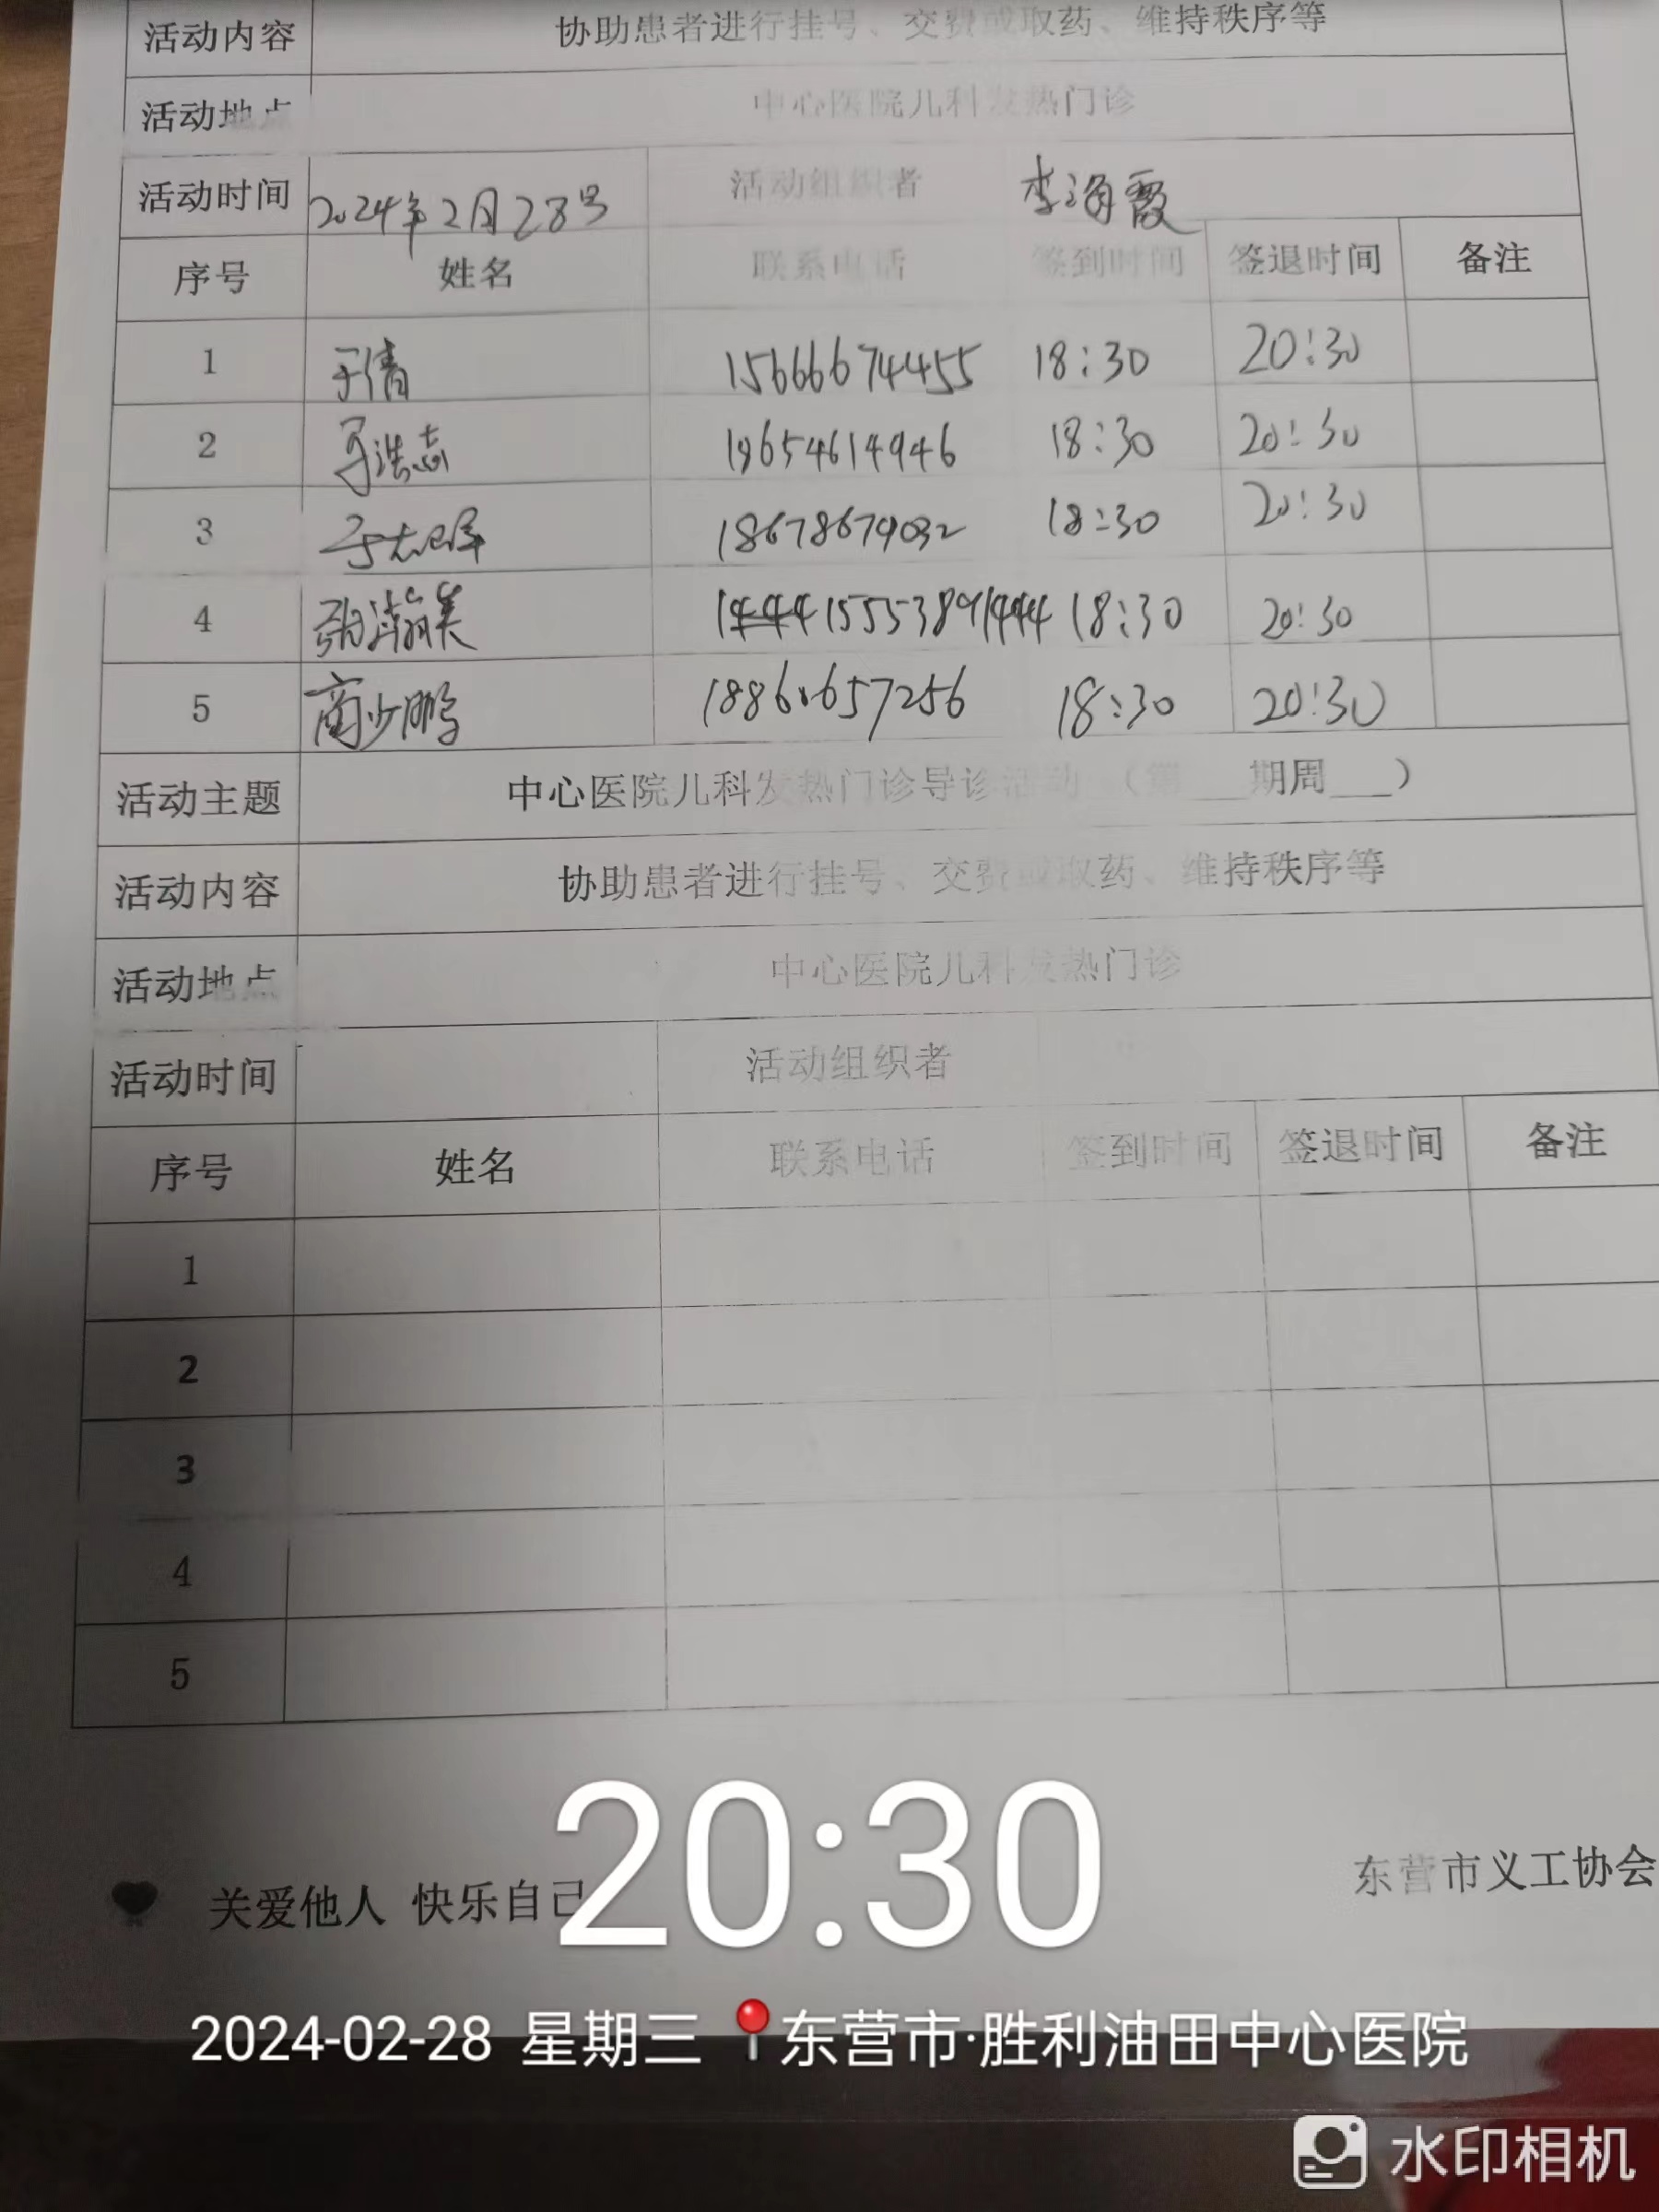 活动内容 协助患者进行挂号、交费或取药、维持秩序等
活动地点 中心医院儿科发热门诊
活动时间 2024年2月28号 活动组织者 李海霞
序号 姓名 联系电话 签到时间 签退时间 备注
1 于倩 15666674455 18:30 20:30
2 浩志 18654614946 18:30 20:30
3 于 18678679032 18:30 20:30
4 张瀚 15553891444 18:30 20:30
5 商少鹏 18860657256 18:30 20:30
活动主题 中心医院儿科发热门诊导诊活动（第___期周___）
活动内容 协助患者进行挂号、交费或取药、维持秩序等
活动地点 中心医院儿科发热门诊
活动时间 活动组织者
序号 姓名 联系电话 签到时间 签退时间 备注
1
2
3
4
5
20:30
关爱他人 快乐自己 东营市义工协会
2024-02-28 星期三 东营市·胜利油田中心医院
水印相机